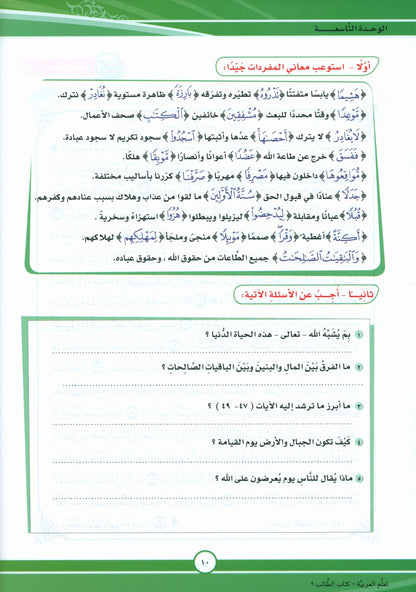 الوحدة التاسعة
أوّلًا - استوعب معاني المفردات جَيّدًا:
﴿هَشِيمًا﴾ يابسًا متفتتًا ﴿تَذْرُوهُ﴾ تطيّره وتفرّقه ﴿بَارِزَةً﴾ ظاهرة مستوية ﴿نُغَادِرْ﴾ نترك.
﴿مَوْعِدًا﴾ وقتًا محددًا للبعث ﴿مُشْفِقِينَ﴾ خائفين ﴿الْكِتَابُ﴾ صحف الأعمال.
﴿لَا يُغَادِرُ﴾ لا يترك ﴿أَحْصَىٰهَا﴾ عدّها وأثبتها ﴿اسْجُدُوا﴾ سجود تكريم لا سجود عبادة.
﴿فَفَسَقَ﴾ خرج عن طاعة الله ﴿عَضُدًا﴾ أعوانًا وأنصارًا ﴿مَوْبِقًا﴾ هلكًا.
﴿مُوَاقِعُوهَا﴾ داخلون فيها ﴿مَصْرِفًا﴾ مهربًا ﴿صَرَّفْنَا﴾ كرّرنا بأساليب مختلفة.
﴿جَدَلًا﴾ عنادًا في قبول الحق ﴿سُنَّةُ الْأَوَّلِينَ﴾ ما لقوا من عذاب وهلاك بسبب عنادهم وكفرهم.
﴿قُبُلًا﴾ عيانًا ومقابلة ﴿لِيُدْحِضُوا﴾ ليزيلوا ويبطلوا ﴿هُزُوًا﴾ استهزاءً وسخرية.
﴿أَكِنَّةً﴾ أغطية ﴿وَقْرًا﴾ صممًا ﴿مَوْئِلًا﴾ منجىً وملجأ ﴿لِمَهْلِكِهِم﴾ لهلاكهم.
﴿وَالْبَاقِيَاتُ الصَّالِحَاتُ﴾ جميع الطّاعات من حقوق الله، وحقوق عباده.
ثانيًا - أجبْ عن الأسئلة الآتية:
١ بِمَ يُشَبِّهُ الله - تعالى - هذه الحياة الدُّنيا ؟
٢ ما الفرقُ بَيْنَ المالِ والبنينَ وبَيْنَ الباقياتِ الصَّالِحاتِ ؟
٣ ما أبرز ما ترشد إليه الآيات (٤٧- ٤٩) ؟
٤ كَيْفَ تكون الجبال والأرض يوم القيامة ؟
٥ ماذا يُقال للنَّاسِ يوم يُعرضون على الله ؟
١٠
تعلّم العربيّة - كتاب الطّالب ٩